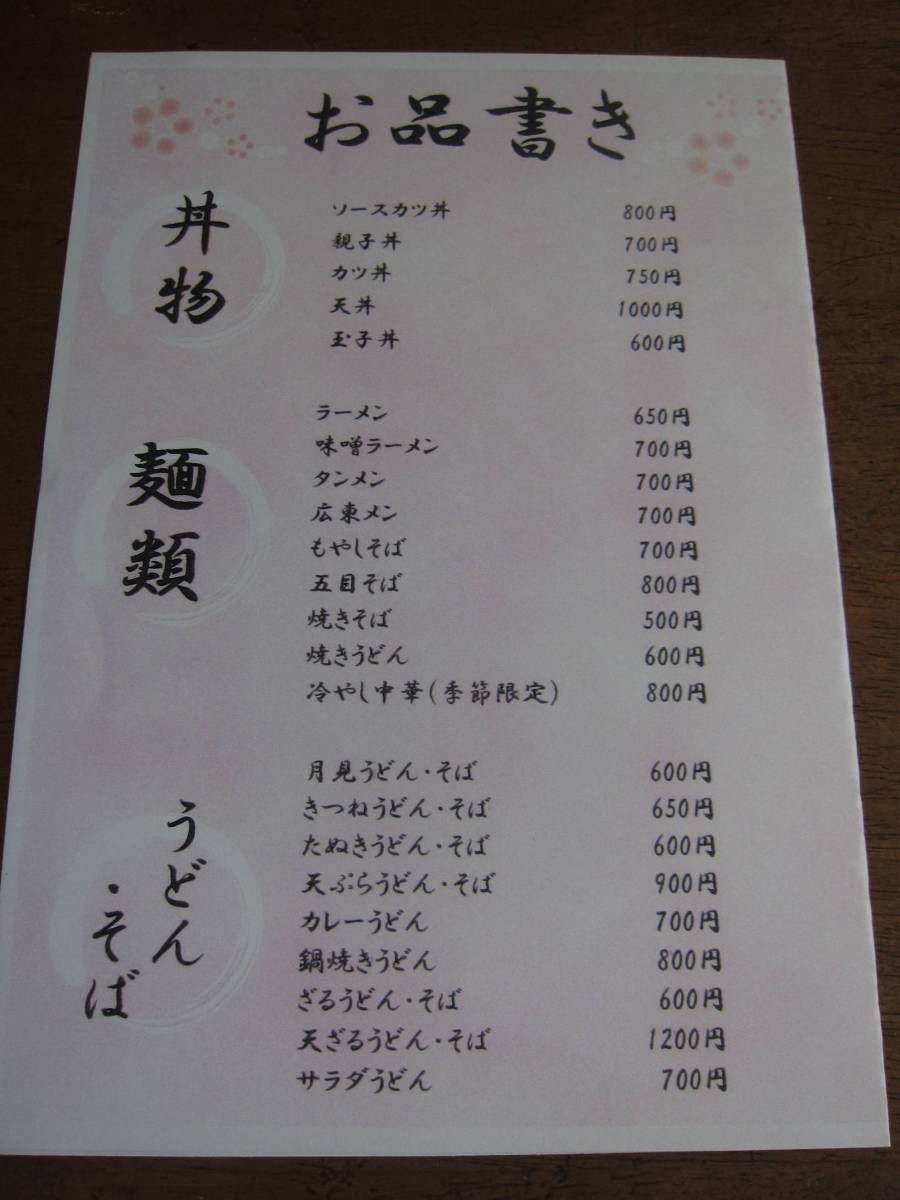 お品書き
丼物
ソースカツ丼 800円
親子丼 700円
カツ丼 750円
天丼 1000円
玉子丼 600円
麺類
ラーメン 650円
味噌ラーメン 700円
タンメン 700円
広東メン 700円
もやしそば 700円
五目そば 800円
焼きそば 500円
焼きうどん 600円
冷やし中華(季節限定) 800円
うどん
・そば
月見うどん・そば 600円
きつねうどん・そば 650円
たぬきうどん・そば 600円
天ぷらうどん・そば 900円
カレーうどん 700円
鍋焼きうどん 800円
ざるうどん・そば 600円
天ざるうどん・そば 1200円
サラダうどん 700円